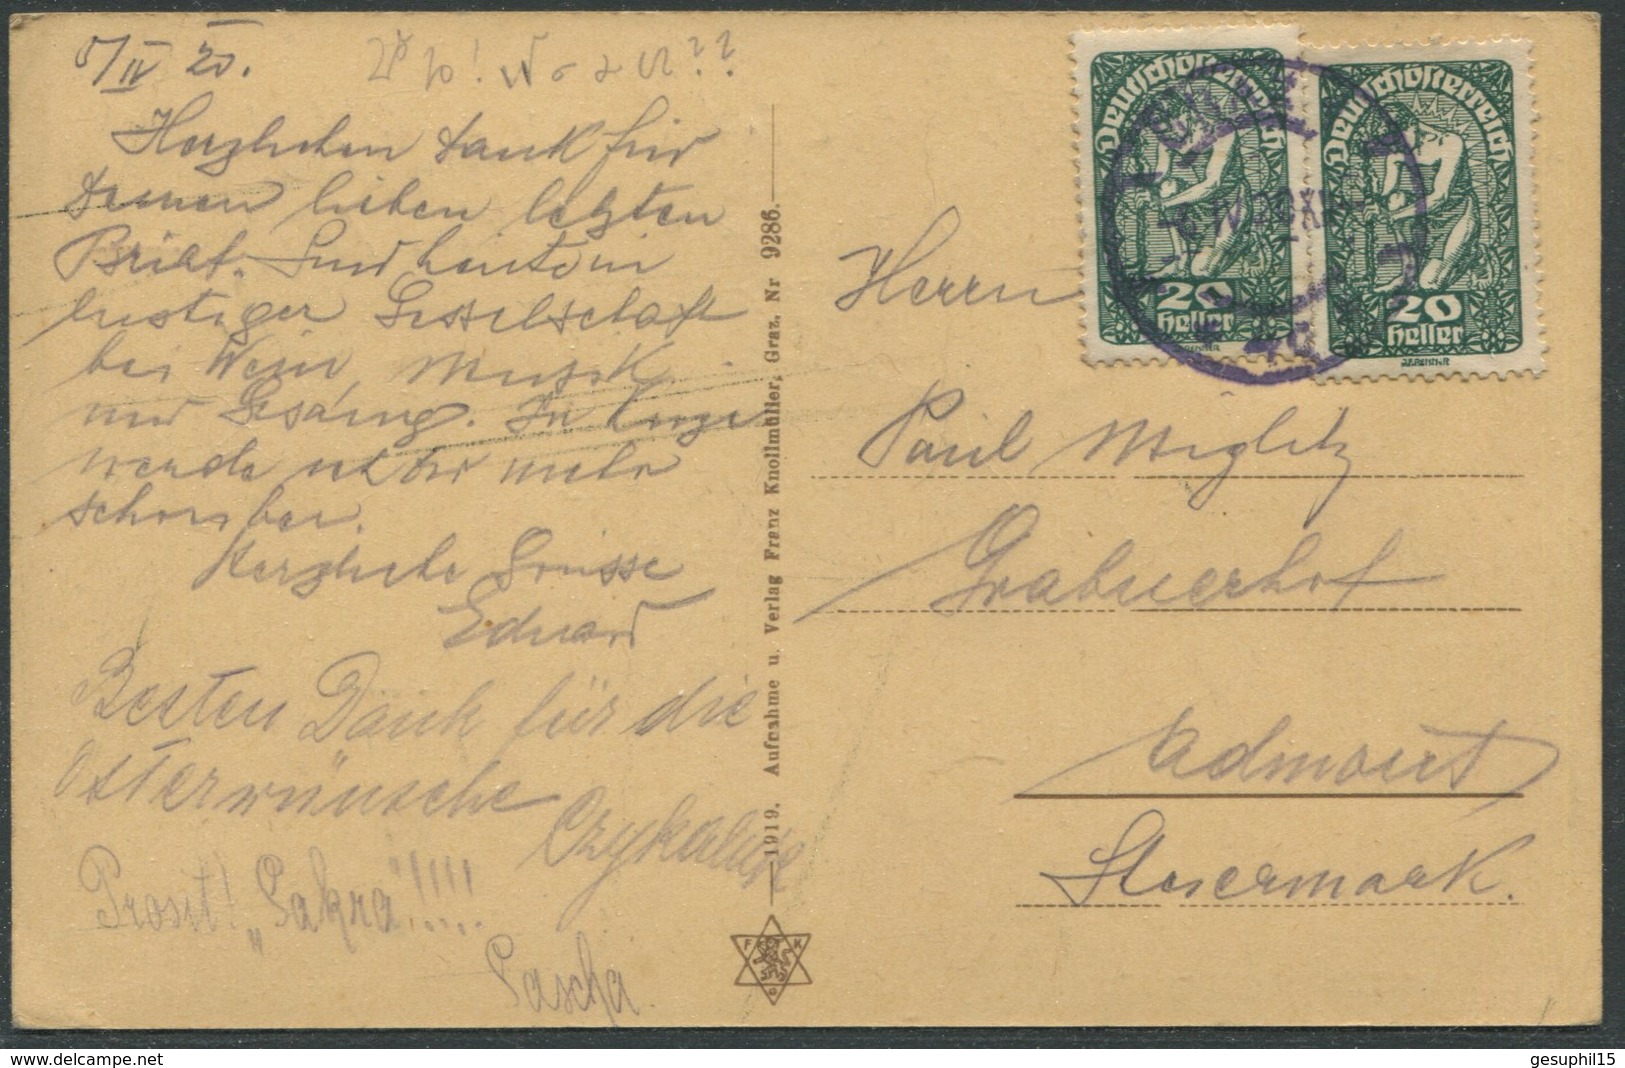 5/IV 20.
Herzlichen Dank für
Deinen lieben letzten
Brief. Sind heute in
lustiger Gesellschaft
bei Wein, Musik
und Gesang. In Kürze
werde ich dir mehr
schreiben.
Herzliche Grüsse
Eduard
Besten Dank für die
Osterwünsche
Prosit! „Sakra“!!!!
Sascha
1919. Aufnahme u. Verlag Franz Knollmüller, Graz. Nr 9286.
F K G
Deutschösterreich
20
heller
Deutschösterreich
20
heller
J.F.RENNER
Herrn
Paul Miglitz
Grabnerhof
Admont
Steiermark.
www.delcampe.net
gesuphil15